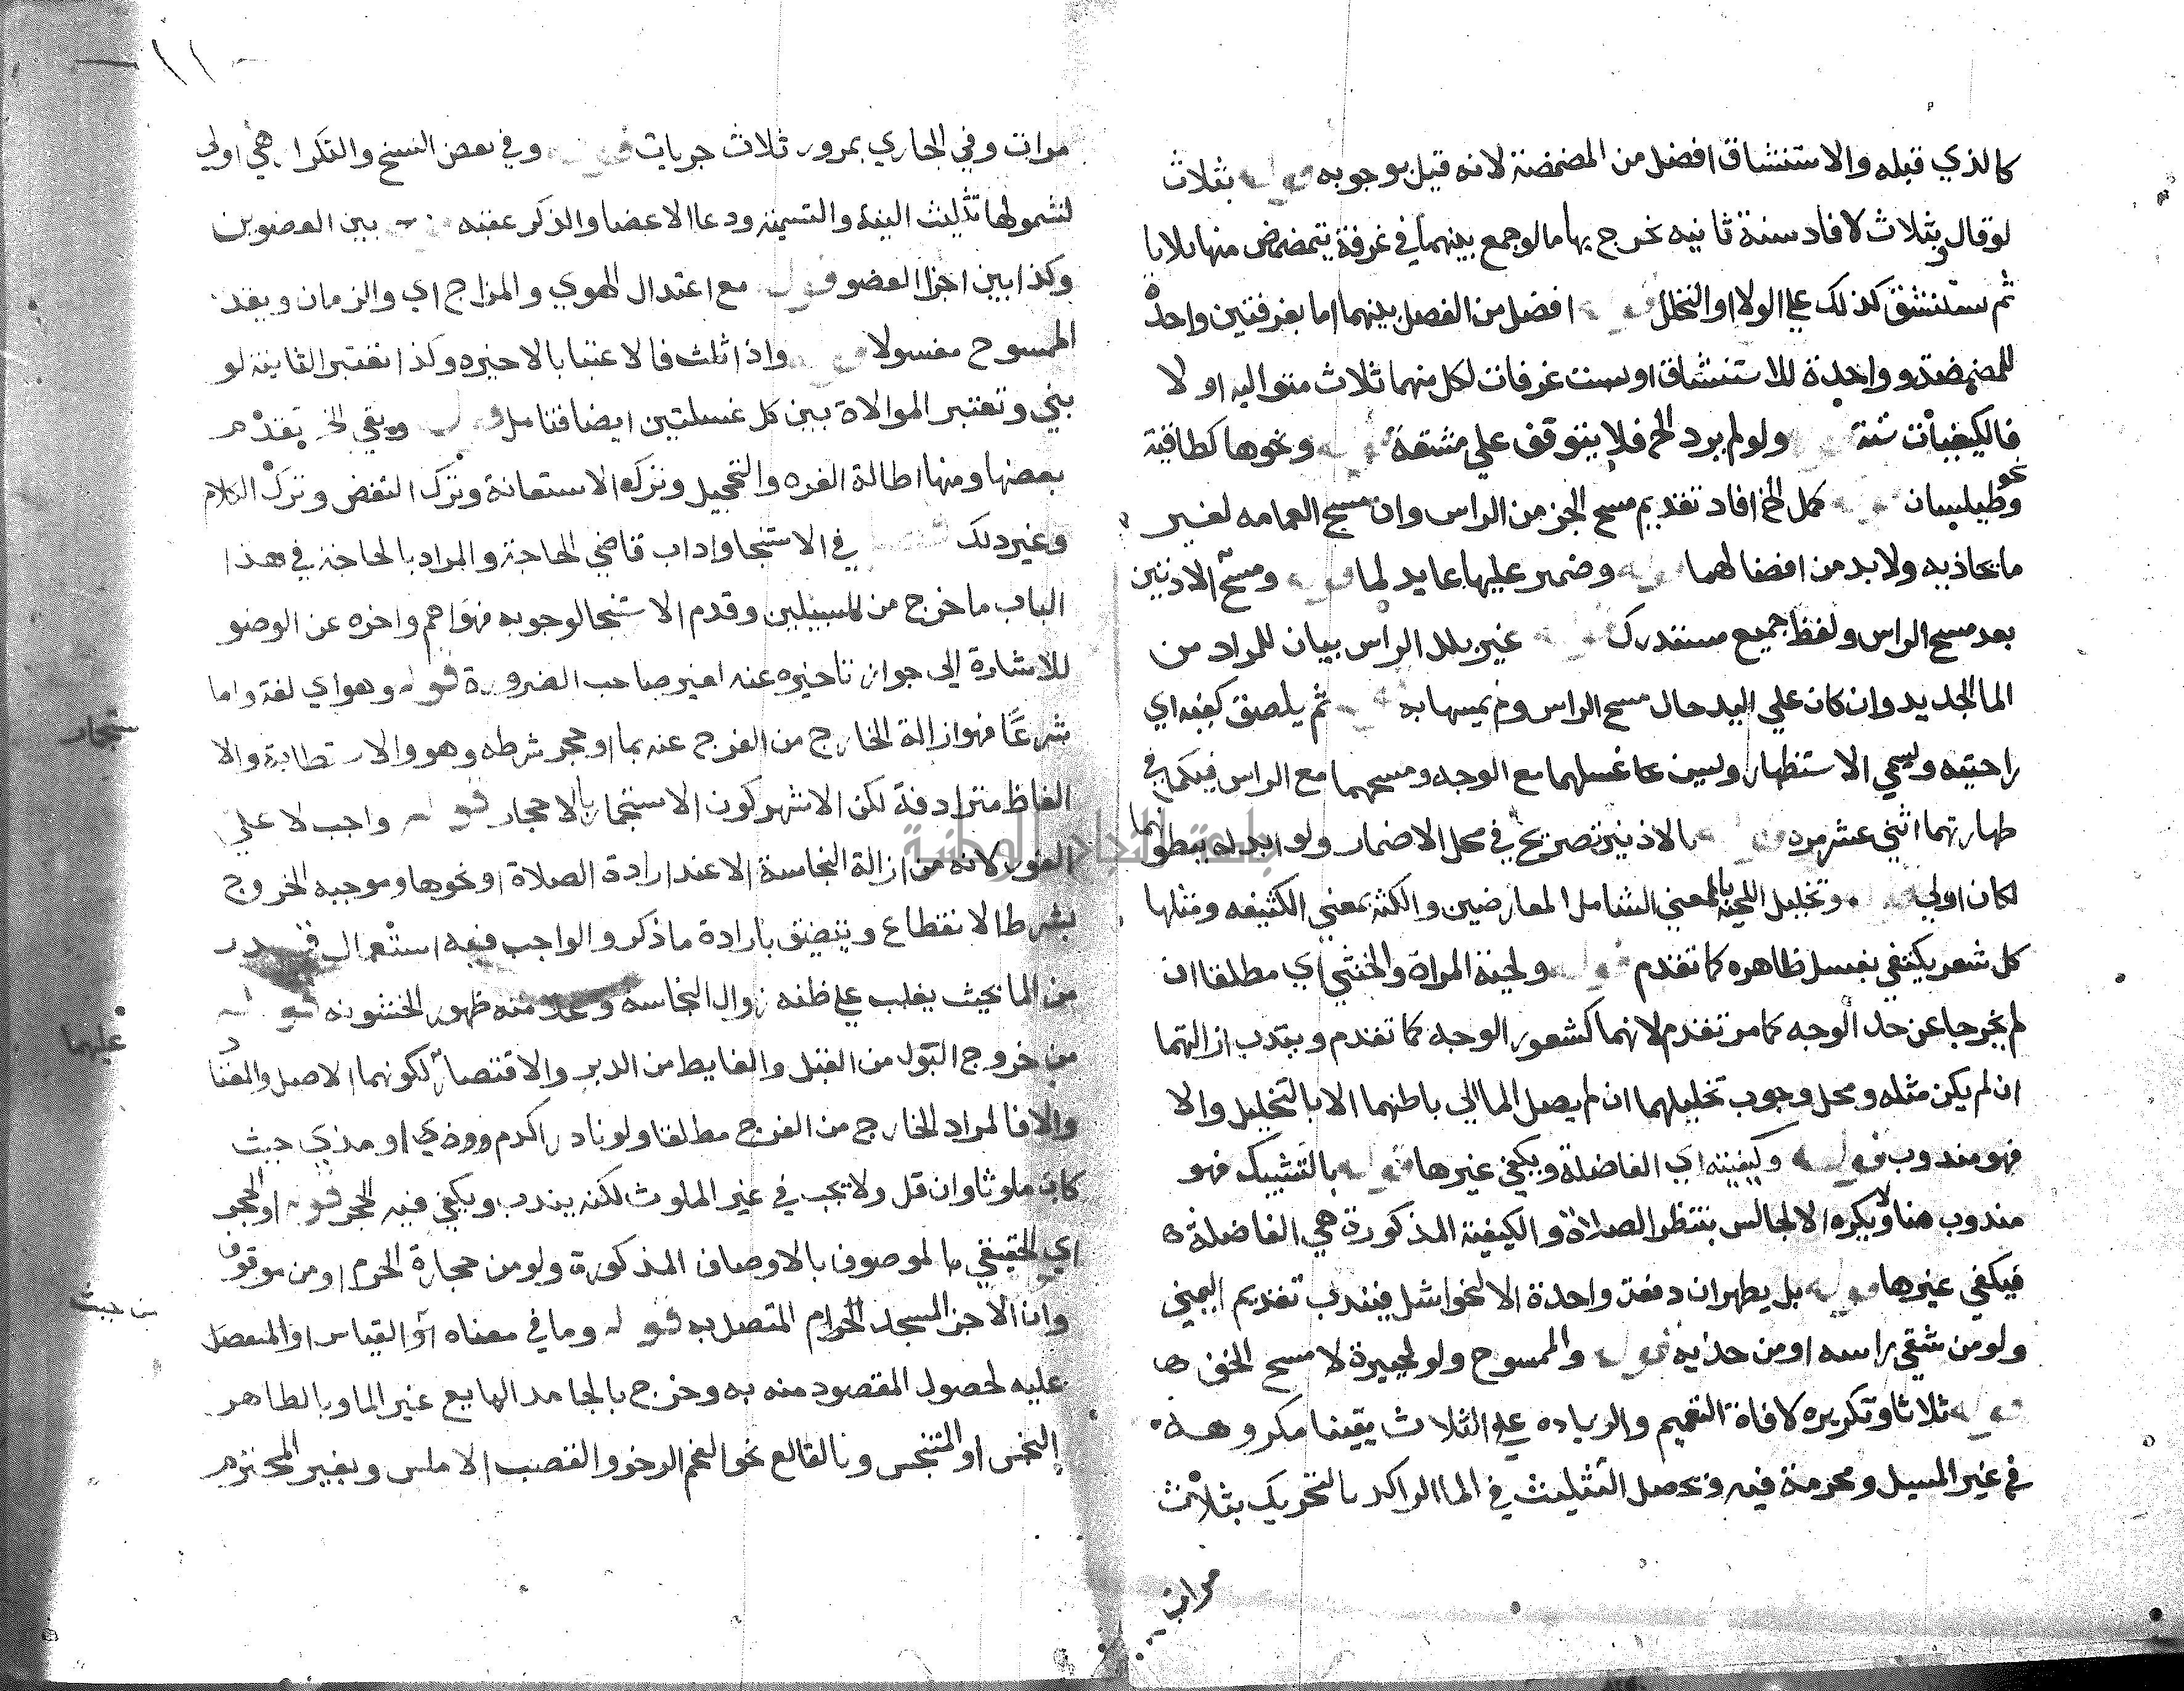 كالذي قبله والاستنشاق افضل من المضمضة لانه قيل بوجوبه قوله بثلاث
لو قال وبثلاث لافاد سنة ثانيه نخرج بها ما لو جمع بينهما في غرفة يتمضمض منها ثلاثا
ثم يستنشق كذلك علي الولا او التخلل قوله افضل من الفصل بينهما اما بغرفتين واحدة
للمضمضة وواحدة للاستنشاق او بست غرفات لكل منهما ثلاث متواليه او لا
فالكيفيات ستة قوله ولو لم يرد الخ فلا يتوقف علي مشقة قوله ونحوها كطاقية
ونحو طيلسان قوله كمل الخ افاد تقديم مسح الجز من الراس وان مسح العمامه لغير
ما يحاذيه ولا بد من افضالهما قوله وضمير عليها عايد لما قوله ومسح الاذنين
بعد مسح الراس ولفظ جميع مستدرك قوله غير بلل الراس بيان للمراد من
الما الجديد وان كان علي اليد حال مسح الراس ولم يمسها به قوله ثم يلصق كفيه اي
راحتيه ويسمي الاستظهار ويسن غسلهما مع الوجه ومسحهما مع الراس فيكمل في
طهارتهما اثني عشر مره قوله بالاذنين تصريح في محل الاضمار ولو ابدله
لكان اولي قوله وتخليل اللحية بالمعني الشامل للعارضين والكثة بمعني الكثيفه ومثلها
كل شعر يكتفي بغسل ظاهره كما تقدم قوله ولحية المراة والخنثي اي مطلقا ان
لم يخرجا عن حد الوجه كما مر تقدم لانهما كشعور الوجه كما تقدم ويندب ازالتهما
ان لم يكن مثله ومحل وجوب تخليلهما ان لم يصل الما الي باطنهما الا بالتخليل والا
فهو مندوب قوله وكيفيته اي الفاضلة ويكفي غيرها قوله بالتشبيك فهو
مندوب هنا ولا يكره الا لجالس ينتظر الصلاة والكيفية المذكورة هي الفاضلة
فيكفي غيرها قوله بل يطهران دفعة واحدة الا لنحو اشل فيندب تقديم اليمني
ولو من شقي راسه او من خديه قوله والممسوح ولو لجبيرة لا مسح الخف
قوله ثلاثا وتكريره لافادة التعميم والزياده علي الثلاث يقينا مكروهة
في غير المسيل ومحرمة فيه ويحصل التثليث في الما الراكد بالتحريك بثلاث
مرات
١١
مرات وفي الجاري بمرور ثلاث جريات قوله وفي بعض النسخ والتكرار هي اولي
لشمولها تثليث النية والتسمية ودعا الاعضا والذكر عقبه قوله بين العضوين
وكذا بين اجزا العضو قوله مع اعتدال الهوي والمزاج اي والزمان ويقدر
الممسوح مغسولا قوله واذا ثلث فالاعتبار بالاخيره وكذا تعتبر الثانية لو
ثني وتعتبر الموالاة بين كل غسلتين ايضا فتامل قوله وبقي الخ تقدم
بعضها ومنها اطالة الغره والتحجيل وتركه الاستعانة وترك النفض وترك الكلام
وغير ذلك فصل في الاستنجا واداب قاضي الحاجة والمراد بالحاجة في هذا
الباب ما خرج من السبيلين وقدم الاستنجا لوجوبه فهو اهم واخره عن الوضو
للاشارة الي جواز تاخيره عنه لغير صاحب الضرورة قوله وهو اي لغة واما
شرعا فهو ازالة الخارج من الفرج عنه بما او حجر بشرطه وهو والاستطابة والا
ستجمار
الفاظ مترادفة لكن الاشهر كون الاستجمار بالاحجار قوله واجب لا علي
الفور لانه من ازالة النجاسة الا عند ارادة الصلاة او نحوها وموجبه الخروج
بشرط الانقطاع ويتضيق بارادة ما ذكر والواجب فيه استعمال قدر
من الما بحيث يغلب علي ظنه زوال النجاسة وعلامته ظهور الخشونه قوله
من خروج البول من القبل والغايط من الدبر والاقتصار عليهما لكونهما الاصل والمعتاد
والا فالمراد الخارج من الفرج مطلقا ولو نادرا كدم وودي او مذي من حيث
كان ملوثا وان قل ولا يجب في غير الملوث لكنه يندب ويكفي فيه الحجر قوله او الحجر
اي الحقيقي بالموصوف بالاوصاف المذكورة ولو من حجارة الحرم او من موقوف
وان الاجز المسجد الحرام المتصل به قوله وما في معناه او القياس او المنفصل
عليه لحصول المقصود منه به وخرج بالجامد المايع غير الما وبالطاهر
النجس او المتنجس وبالقالع نحو الفحم الرخو والقصب الاملس وبغير المحترم